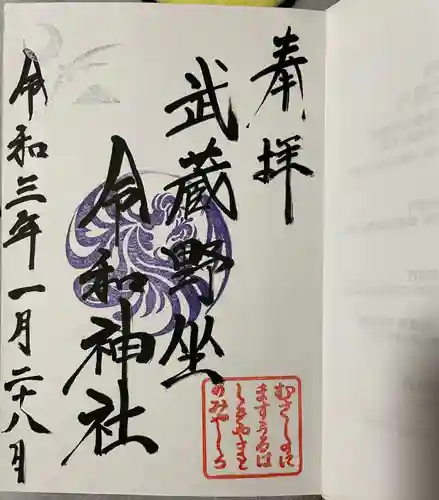 奉拝
武蔵野坐
令和神社
令和三年一月二十八日
むさしのに
ますうるは
しきやまと
のみやしろ